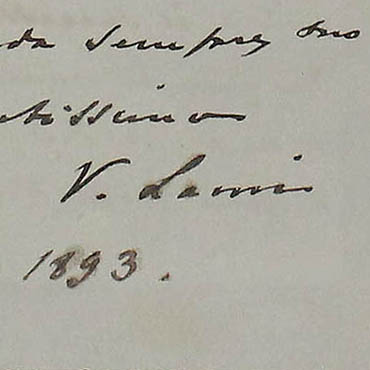 da sempre suo
tissimo
V. Lami
1893.